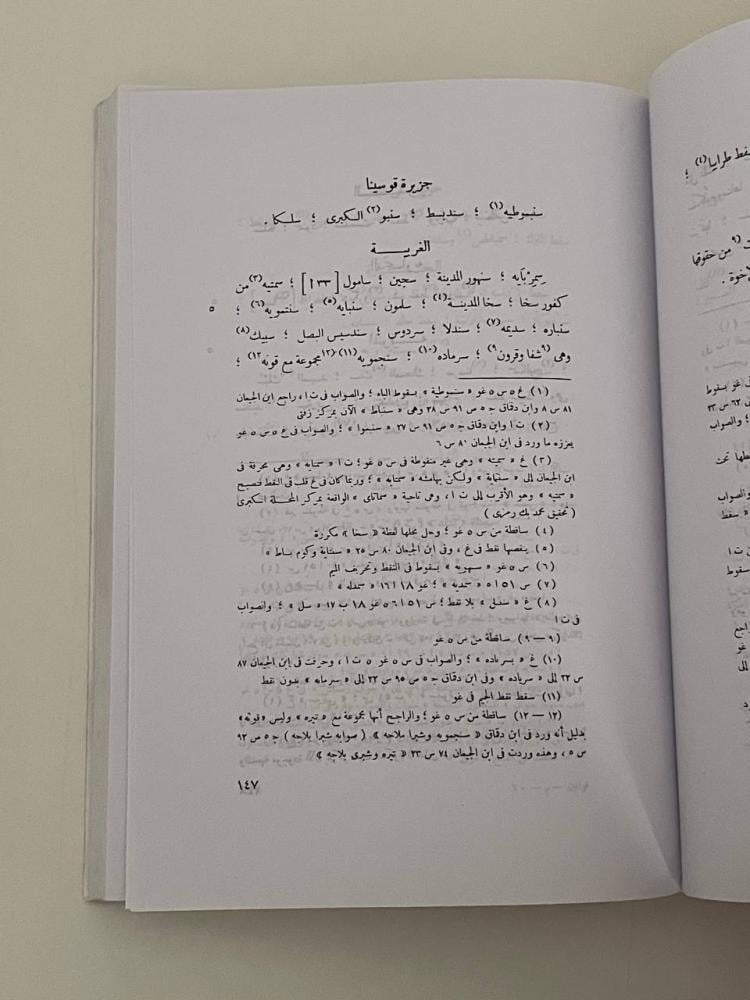 جزيرة قوسينا
سنبوطيه(١) ؛ سندبسط ؛ سنبو(٢) الكبرى ؛ سلكا .
الغربية
سِمِرْبَايه ؛ سنهور المدينة ؛ سجين ؛ سامول [١٣٣] ؛ سمتيه(٣) من
كفور سخا ؛ سخا المدينة(٤) ؛ سلمون ؛ سنبايه(٥) ؛ سنتمويه(٦) ؛
٥
سنباره ؛ سديمه(٧) ؛ سندلا ؛ سردوس ؛ سندسيس البصل ؛ سبيك(٨)
وهى (٩شفا وقرون٩) ؛ سرماده(١٠) ؛ سنجمويه(١١) (١٢مجموعة مع قونه١٢) ؛
(١) غ ٥ س ٥ غو « سنموطية » بسقوط الباء ؛ والصواب فى ت ١ ، راجع ابن الجيعان
٨١ س ٨ وابن دقاق ج ٥ س ٩١ س ٢٨ وهى « سنباط » الآن بمركز زفتى
(٢) ت ١ وابن دقاق ج ٥ س ٩١ س ٢٧ « سنبموا » ؛ والصواب فى غ ٥ س ٥ غو
يعززه ما ورد فى ابن الجيعان ٨٠ س ٦
(٣) غ « سميته » وهى غير منقوطة فى س ٥ غو ؛ ت ١ « سمتايه » وهى محرفة فى
ابن الجيعان إلى « سنتاية » ولكن بهامشه « سمتايه » ؛ وربما كان فى غ قلب فى النقط فتصبح
« سمتيه » وهو الأقرب إلى ت ١ ، وهى ناحية « سماتاى » الواقعة بمركز المحلة الكبرى
( تحقيق محمد بك رمزى )
(٤) ساقطة من س ٥ غو ؛ وحل محلها لفظة « سخا » مكررة
(٥) ينقصها نقط فى غ ، وفى ابن الجيعان ٨٠ س ٢٥ « سنتاية وكوم بساط »
(٦) س ٥ غو « سهويه » بسقوط فى النقط وتحريف الميم
(٧) س ١٥١ ٥ « سمديه » ؛ غو ١٨ ١ ١٦ « سمدله »
(٨) غ « سدبى » بلا نقط ؛ س ١٥١ ٦ ٥ غو ١٨ ب ١٧ « سل » ؛ والصواب
فى ت ١
(٩ — ٩) ساقطة من س ٥ غو
(١٠) غ « بسرماده » ؛ والصواب فى س ٥ غو ٥ ت ١ ، وحرفت فى ابن الجيعان ٨٧
س ٢٢ إلى « سرياده » وفى ابن دقاق ج ٥ س ٩٥ س ٢٢ إلى « سرمايه » بدون نقط
(١١) سقط نقط الجيم فى غو
(١٢ — ١٢) ساقطة من س ٥ غو ؛ والراجح أنها مجموعة مع « تيره » وليس « قونه »
بدليل أنه ورد فى ابن دقاق « سنجمويه وشبرا ملاجه » ( صوابه شبرا بلاجه ) ج ٥ س ٩٢
س ٥ ، وهذه وردت فى ابن الجيعان ٧٤ س ٢٣ « تيره وشبرى بلاجه »
١٤٧